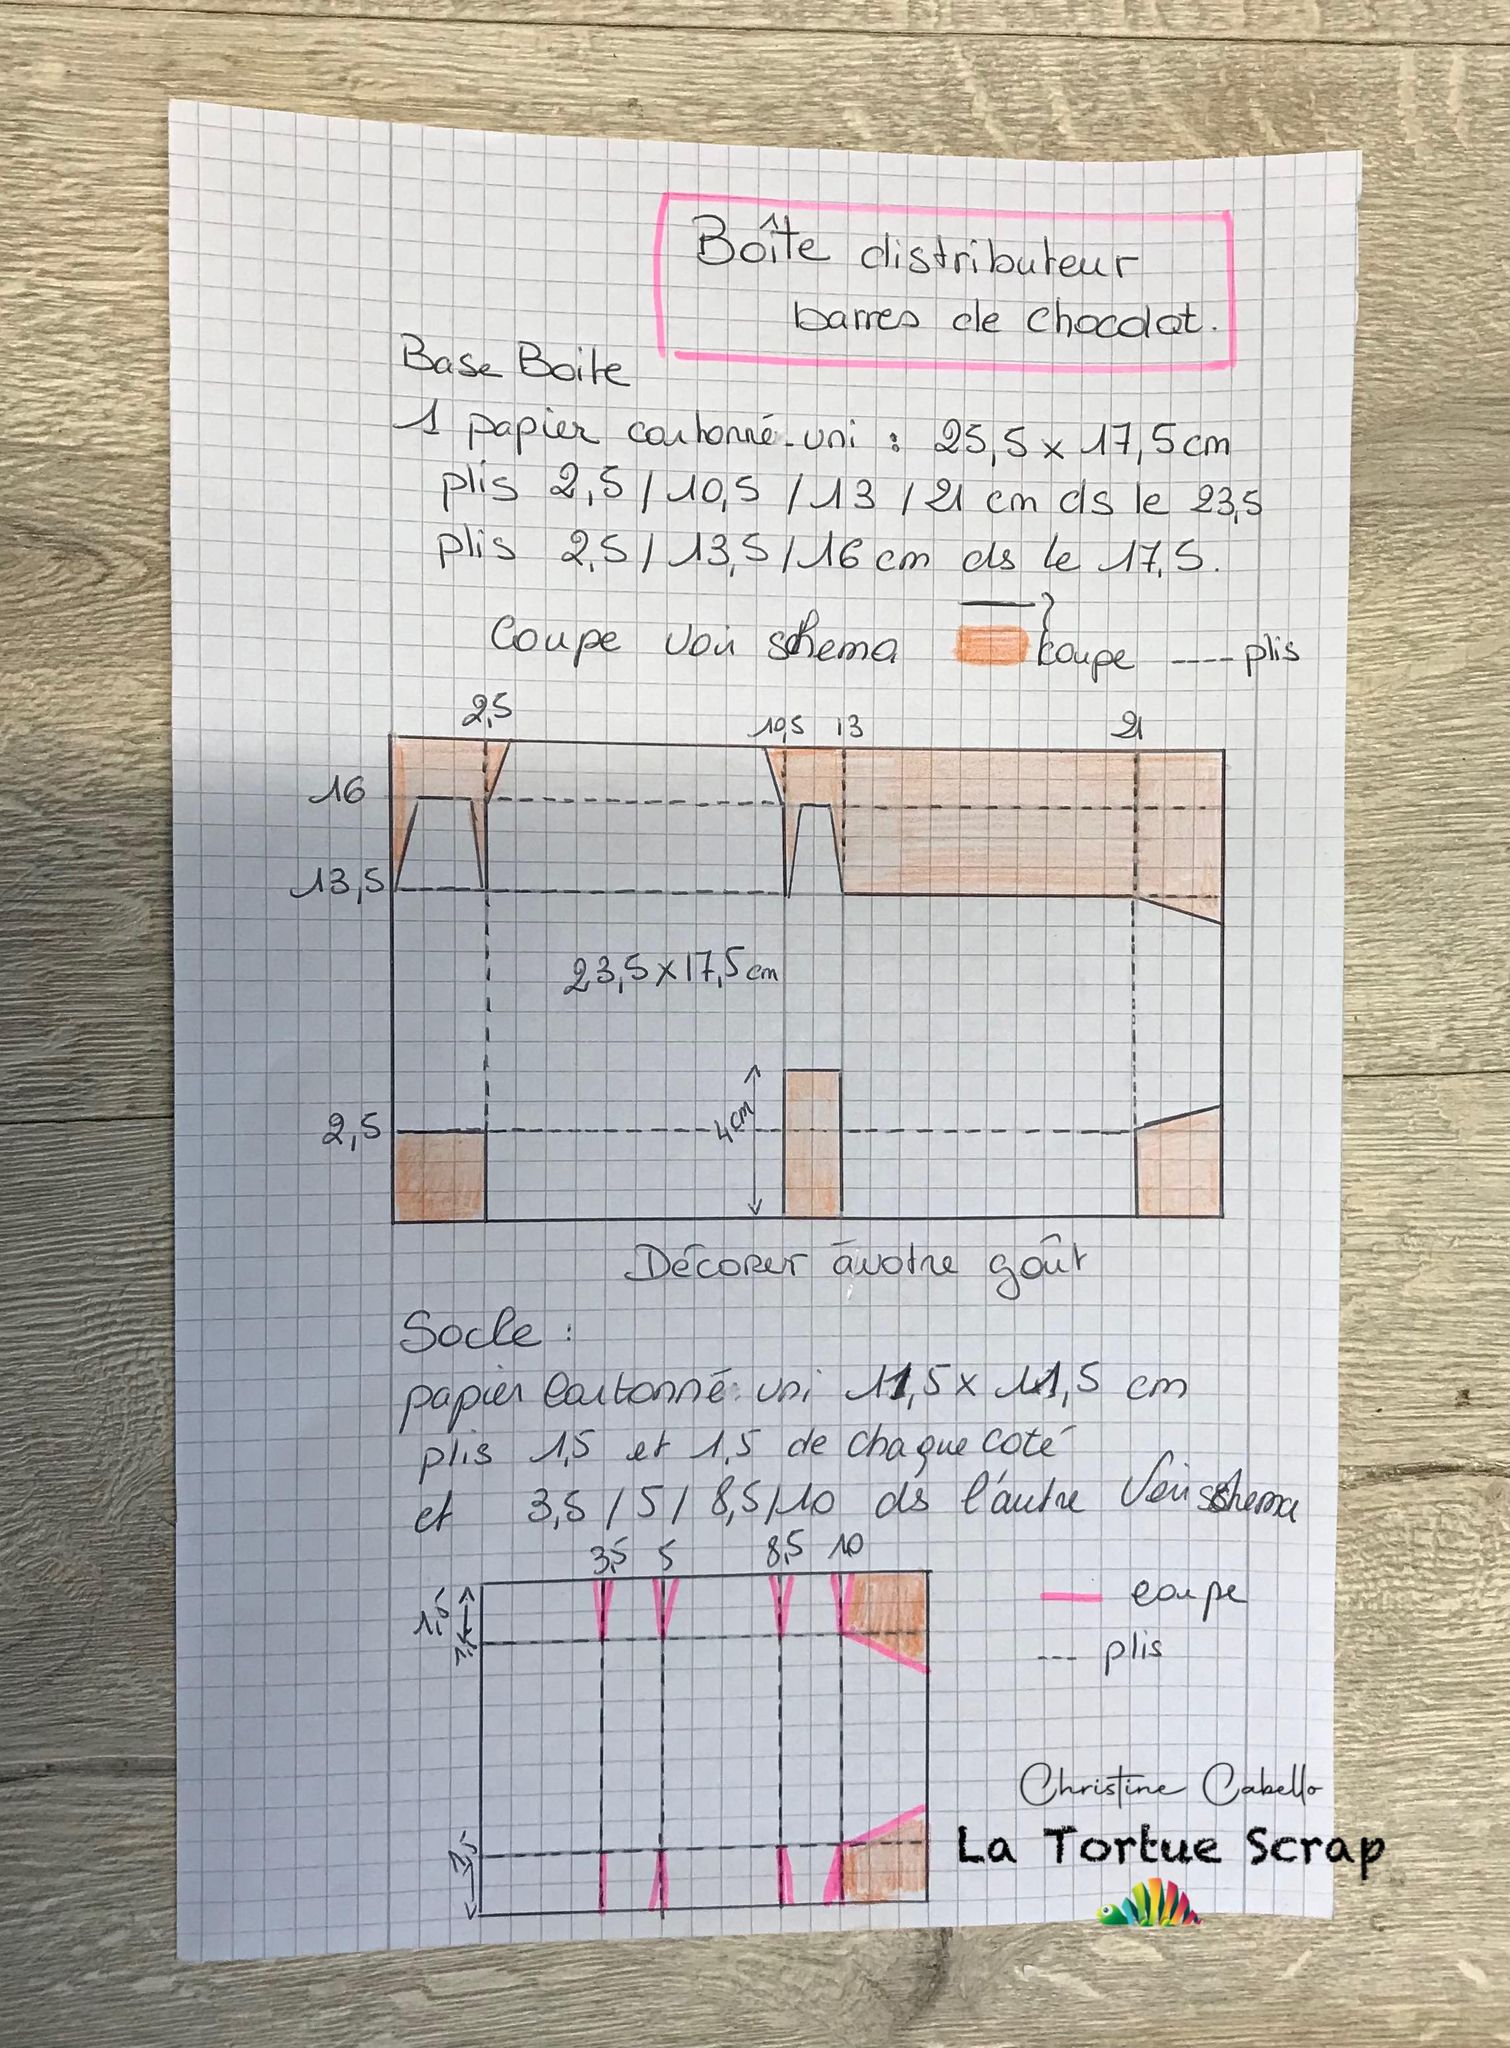 Boîte distributeur
barres de chocolat.
Base Boite
1 papier cartonné uni : 25,5 x 17,5 cm
plis 2,5 / 10,5 / 13 / 21 cm ds le 23,5
plis 2,5 / 13,5 / 16 cm ds le 17,5.
Coupe voir schema coupe ---- plis
2,5 10,5 13 21
16
13,5
23,5 x 17,5 cm
4 cm
2,5
Décorer à votre goût
Socle :
papier cartonné uni 11,5 x 11,5 cm
plis 1,5 et 1,5 de chaque coté
et 3,5 / 5 / 8,5 / 10 ds l'autre Voir schema
3,5 5 8,5 10
1,5
coupe
--- plis
Christine Cabello
La Tortue Scrap